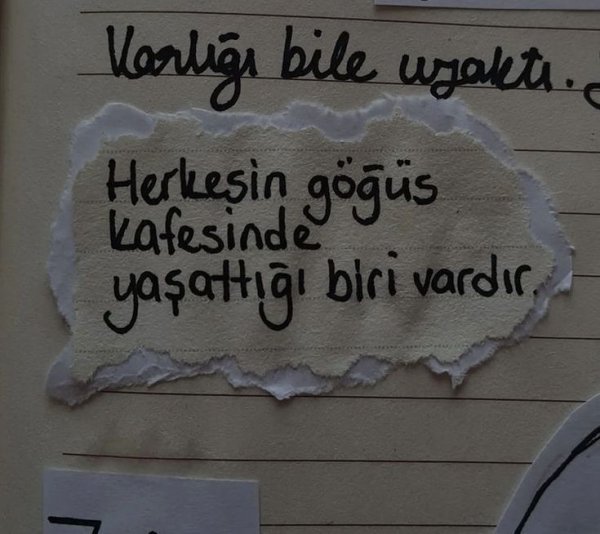 Varlığı bile uzaktı.
Herkesin göğüs
kafesinde
yaşattığı biri vardır.